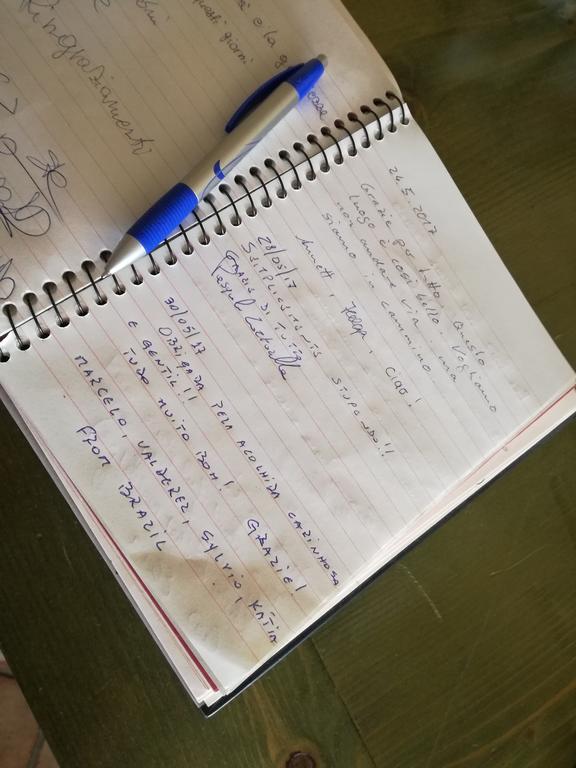 24.5.2017
Grazie per tutto. Questo
luogo è così bello. Vogliamo
non andare via. ma
siamo in cammino
Annett, Ciao!
28/05/17
SEMPLICEMENTE STUPENDO!!
GRAZIE DI TUTTO
30/05/17
OBRIGADA PELA ACOLHIDA CARINHOSA
E GENTIL!!
TUDO MUITO BOM! GRAZIE!
MARCELO, VALDEREZ, SYLVIO, KÁTIA
FROM BRAZIL
Ringraziamento
questi giorni
e la